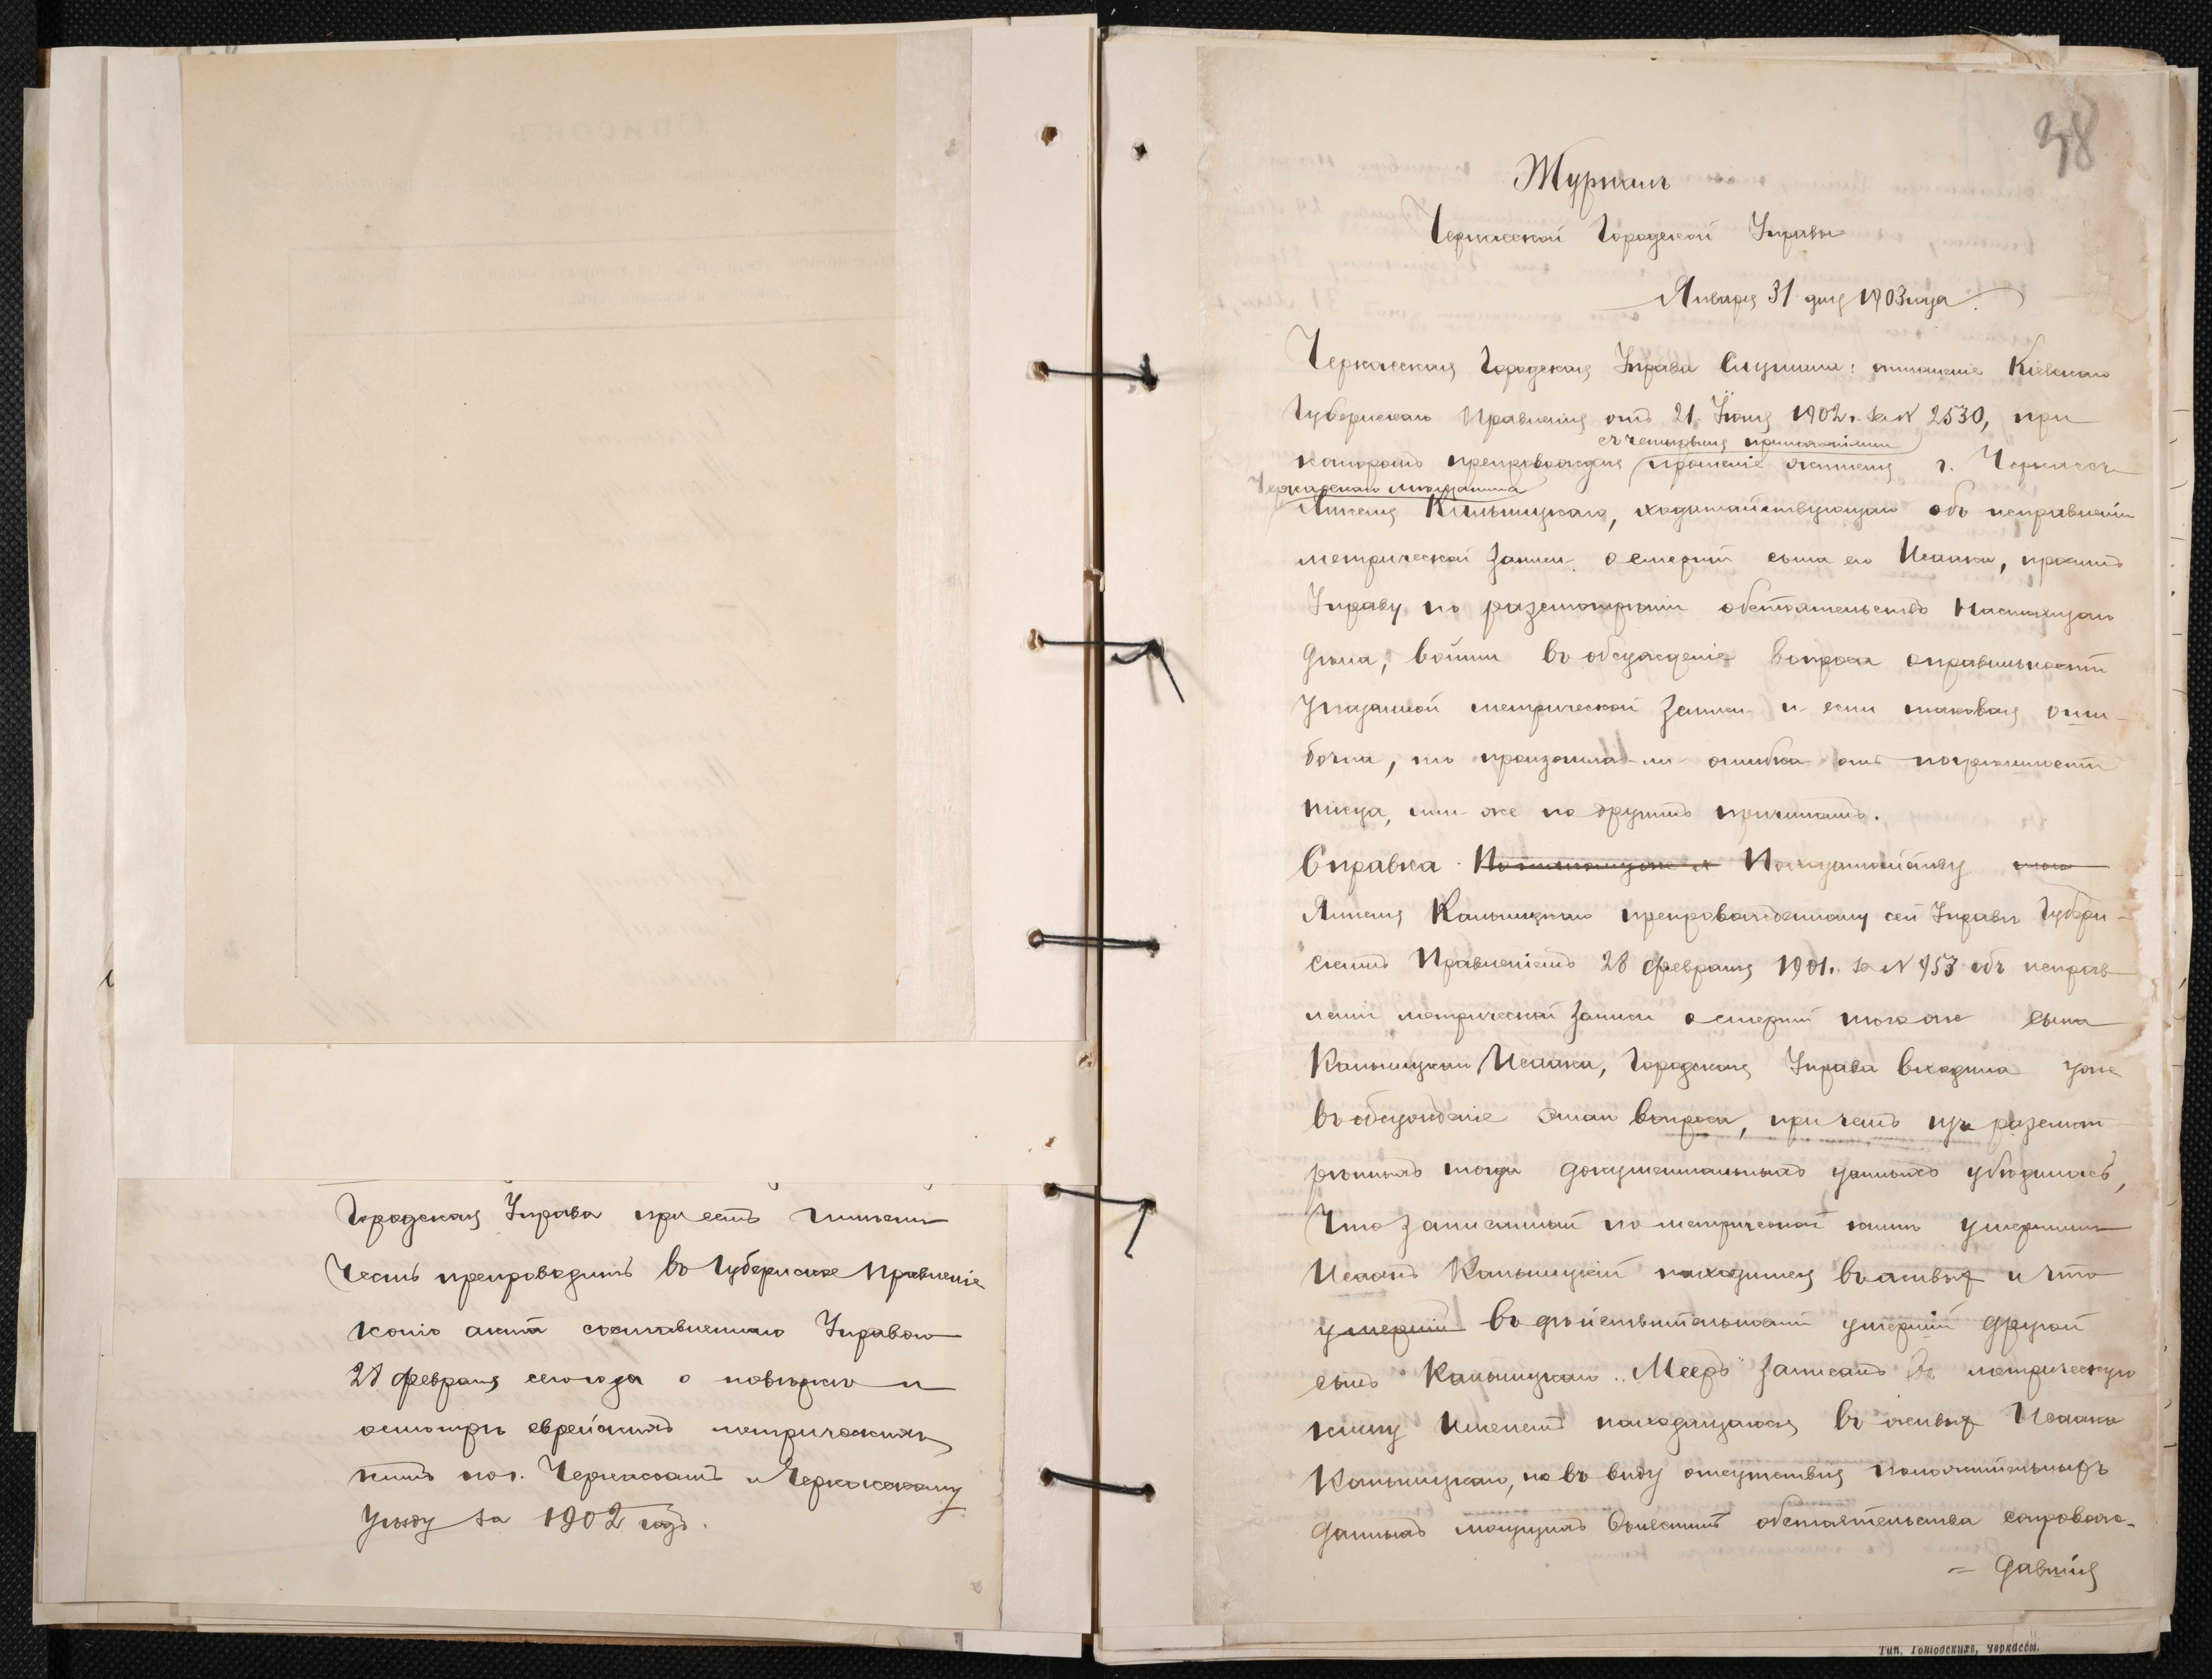 Городская Управа при семъ имѣетъ
честь препроводить въ Губернское Правленіе
копію акта составленнаго Управою
28 февраля сего года о повѣркѣ и
осмотрѣ еврейскихъ метрическихъ
книгъ по г. Черкассамъ и Черкасскому
уѣзду за 1902 годъ.
38
Журналъ
Черкасской Городской Управы
Января 31 дня 1903 года.
Черкасская Городская Управа Слушала: отношеніе Кіевскаго
Губернскаго Правленія отъ 21 Іюня 1902 г. за N 2530, при
съ приложеніями
которомъ препровождая прошеніе жителя г. Черкассъ
Черкасскаго мѣщанина
Кальницкаго, ходатайствующаго объ исправленіи
метрической записи о смерти сына его Исаака, проситъ
Управу по разсмотрѣніи обстоятельствъ настоящаго
дѣла, войти въ обсужденіе вопроса о правильности
указанной метрической записи и если таковая оши-
бочна, то произошла-ли ошибка отъ погрѣшности
писца, или же по другимъ причинамъ.
Справка. По ходатайству
Кальницкаго препровожденному сей Управѣ Губерн-
скимъ Правленіемъ 28 февраля 1901 г. за N 953 объ исправ-
леніи метрической записи о смерти того же сына
Кальницкаго Исаака, Городская Управа входила уже
въ обсужденіе этого вопроса, при чемъ изъ разсмот-
рѣнныхъ тогда документальныхъ данныхъ убѣдилась,
что записанный по метрической книгѣ умершимъ
Исаакъ Кальницкій находится въ живыхъ и что
умершій въ дѣйствительности умершій другой
сынъ Кальницкаго "Мееръ" записанъ въ метрическую
книгу именемъ находящагося въ живыхъ Исаака
Кальницкаго, но въ виду отсутствія положительныхъ
данныхъ могущихъ выяснить обстоятельства сопровож-
= давшія
Тип. Городскихъ, Черкассы.